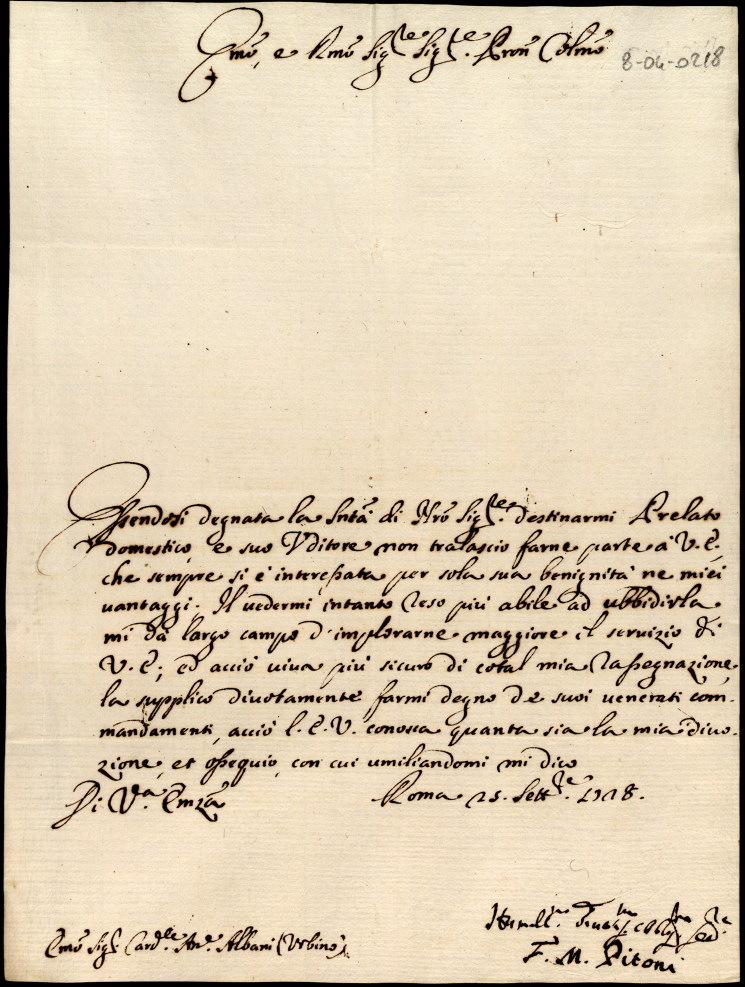 Emõ, e Rmõ Sig.re Sig.re Pron Colmõ
8-04-0218
Essendosi degnata la Sntà di Nrõ Sig.re destinarmi Prelato
domestico, e suo Vditore non tralascio farne parte à V. E.,
che sempre si è interessata per sola sua benignità ne miei
vantaggi. Il vedermi intanto reso più abile ad ubbidirla
mi dà largo campo d'implorarne maggiore il servizio di
V. E; ed acciò viva più sicuro di cotal mia rassegnazione,
la supplico divotamente farmi degno de suoi venerati com-
mandamenti, acciò l'E. V. conosca quanta sia la mia divo-
zione, et ossequio, con cui umiliandomi mi dico
Di V.a Emza
Roma 25. Sett.re 1728.
Emõ Sig.r Card.le An. Albani (Urbino)
Humil.mo Devot.mo Oblig.mo Ser.re
F. M. Pitoni